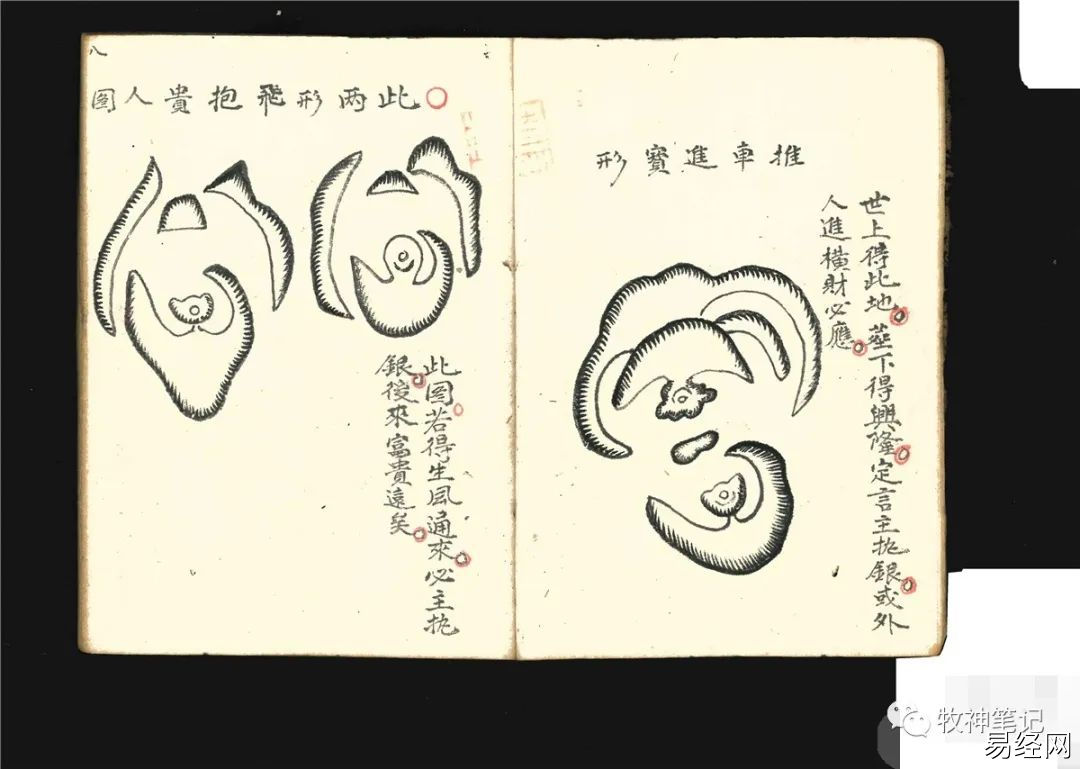 推車進寶形
世上得此地葬下得興隆定言主执銀或外
人進橫財必應
八
此两形飛抱貴人图
此图若得生風通來必主执
銀後來富貴遠矣
牧神笔记
易经网